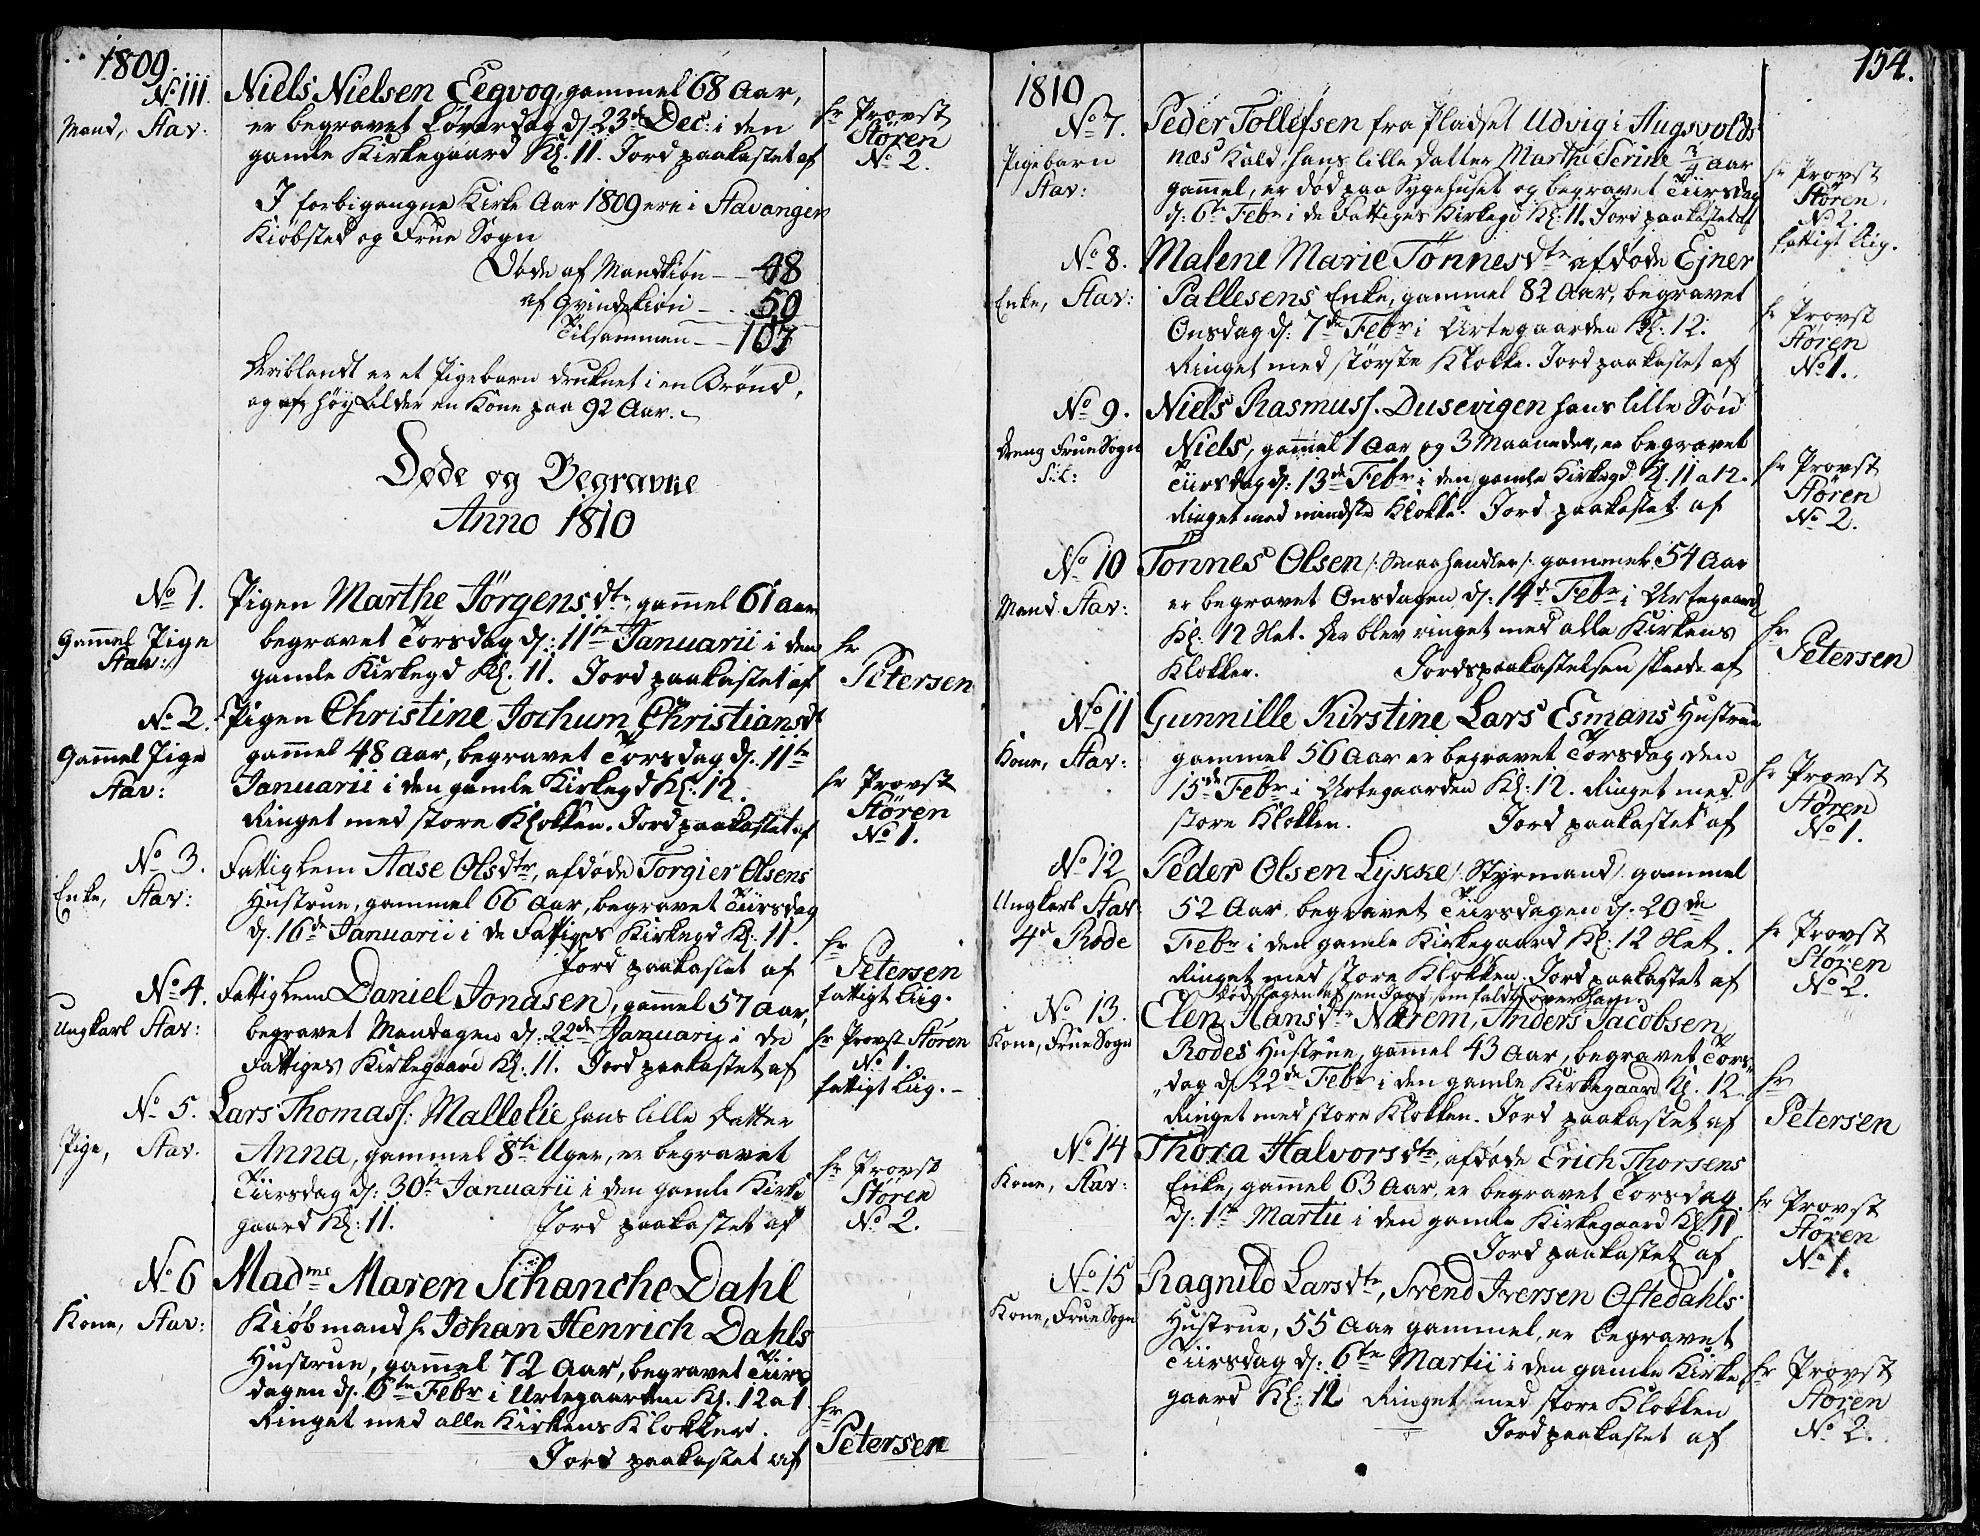 1809.
No 111.
Mand, Stav:
Niels Nielsen Eegvog, gammel 68 Aar,
er begravet Løverdag d: 23de Dec: i den
gamle Kirkegaard Kl. 11. Jord paakastet af
hr Provst
Støren
No 2.
I forbigangne Kirke Aar 1809 ere i Stavanger
Kiøbsted og Frue Sogn
Døde af Mandkiøn — 48
af Qvindekiøn —
Tilsammen — 107
Deriblandt er et Pigebarn druknet i en Brønd,
og af høy Alder en Kone paa 92 Aar. —
Døde og Begravne
Anno 1810
No 1.
Gammel Pige
Stav:
Pigen Marthe Jörgensdtr, gammel 61 Aar
begravet Torsdag d: 11te Januarii i den
gamle Kirkegd Kl. 11. Jord paakastet af
hr
Petersen
No 2.
Gammel Pige
Stav:
Pigen Christine Jochum Christiansdt
gammel 48 Aar, begravet Torsdag d: 11te
Januarii i den gamle Kirkegd Kl: 12.
Ringet med store Klokken. Jord paakastet af
hr Provst
Støren
No 1.
No 3.
Enke, Stav:
Fattiglem Aase Olsdtr, afdøde Torgier Olsens
Hustrue, gammel 66 Aar, begravet Tiirsdag
d. 16de Januarii i de Fattiges Kirkegd Kl: 11.
Jord paakastet af
hr
Petersen
fattigt Liig.
No 4.
Ungkarl Stav:
Fattiglem Daniel Jonasen, gammel 57 Aar,
begravet Mandagen d. 22de Januarij i de
Fattiges Kirkegaard Kl. 11. Jord paakastet af
hr Provst Støren
No 1.
fattigt Liig. —
No 5.
Pige, Stav.
Lars Thomass: Malletie hans lille Datter
Anna, gammel 8te Uger, er begravet
Tiirsdag d: 30te Januarii i den gamle Kirke
gaard Kl: 11. Jord paakastet af
hr Provst
Støren
No 2.
No 6
Kone, Stav:
Madme Maren Schanche Dahl
Kiøbmand hr Johan Henrich Dahls
Hustrue, gammel 72 Aar, begravet Tiirs
dagen d. 6te Febr i Urtegaarden Kl. 12 a 1
Ringet med alle Kirkens Klokker.
Jord paakastet af
hr
Petersen
154.
1810
No 7.
Pigebarn
Stav:
Peder Tollefsen fra Pladset Udvig i Augsvolds
næs Kald: hans lille Datter Marthe Serine Aar
gammel, er død paa Sygehuset og begravet Tiirsdag
d: 6te Febr i de Fattiges Kirkegd Kl: 11. Jord paakastet af
hr Provst
Støren.
No 2.
fattigt Liig.
No 8.
Enke, Stav:
Malene Marie Tönnesdtr afdøde Ejner
Pallesens Enke, gammel 82 Aar, begravet
Onsdag d: 7de Febr i Urtegaarden Kl: 12.
Ringet med störste Klokke. Jord paakastet af
hr Provst
Støren
No 1.
No 9.
Dreng Frue Sogn
Niels Rasmuss. Dusevigen hans lille Søn
Niels, gammel 1 Aar og 3 Maaneder, er begravet
Tiirsdag d: 13de Febr i den gamle Kirkegd Kl. 11 a 12.
Ringet med mindste Klokke. Jord paakastet af
hr Provst
Støren
No 2.
No 10
Mand Stav:
Tønnes Olsen /: Smaahandler :/ gammel 54 Aar
er begravet Onsdagen d: 14de Febr i Urtegaard
Kl: 12 Slet. Der blev ringet med alle Kirkens
Klokker. Jordspaakastelsen skeede af
hr
Petersen
No 11
Kone, Stav:
Gunnille Kirstine Lars Esmans Hustrue
gammel 56 Aar er begravet Torsdag den
15de Febr i Urtegaarden Kl: 12. Ringet med
store Klokken. Jord paakastet af
hr Provst
Støren
No 1.
No 12
Ungkarl Stav
4de Rode
Peder Olsen Lykke /: Styrmand :/ gammel
52 Aar, begravet Tiirsdagen d: 20de
Febr i den gamle Kirkegaard Kl: 12 Slet.
Ringet med store Klokken. Jord paakastet af
hr Provst
Støren
No 2.
No 13.
Kone, Frue Sogn
dødslagen af en som faldt over
Elen Hansdtr Nærem, Anders Jacobsen
Rodes Hustrue, gammel 43 Aar, begravet Tors
„dag d. 22de Febr i den gamle Kirkegaard Kl. 12.
Ringet med store Klokken. Jord paakastet af
hr
Petersen
No 14
Kone, Stav:
Thora Halvorsdtr, afdøde Erich Thorsens
Enke, gammel 63 Aar, er begravet Torsdag
d: 1te Martii i den gamle Kirkegaard Kl 11
Jord paakastet af
hr Provst
Støren
No 1.
No 15
Kone, Frue Sogn
Ragnild Larsdtr, Svend Iversen Oftedahls
Hustrue, 55 Aar gammel, er begravet
Tiirsdag d: 6te Martii i den gamle Kirke
gaard Kl: 12. Ringet med store Klokken
Jord paakastet af
hr Provst
Støren
No 2.